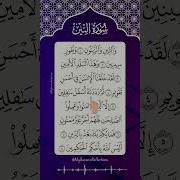 سُورَةُ التِّينِ
وَالتِّينِ وَالزَّيْتُونِ ١ وَطُورِ
سِينِينَ ٢ وَهَٰذَا الْبَلَدِ الْأَمِينِ ٣
لَقَدْ خَلَقْنَا الْإِنسَٰنَ فِي أَحْسَنِ
تَقْوِيمٍ ٤ ثُمَّ رَدَدْنَٰهُ أَسْفَلَ سَٰفِلِينَ
٥ إِلَّا الَّذِينَ ءَامَنُوا وَعَمِلُوا
الصَّٰلِحَٰتِ فَلَهُمْ أَجْرٌ غَيْرُ مَمْنُونٍ
٦ فَمَا يُكَذِّبُكَ بَعْدُ بِالدِّينِ ٧
أَلَيْسَ اللَّهُ بِأَحْكَمِ الْحَٰكِمِينَ ٨